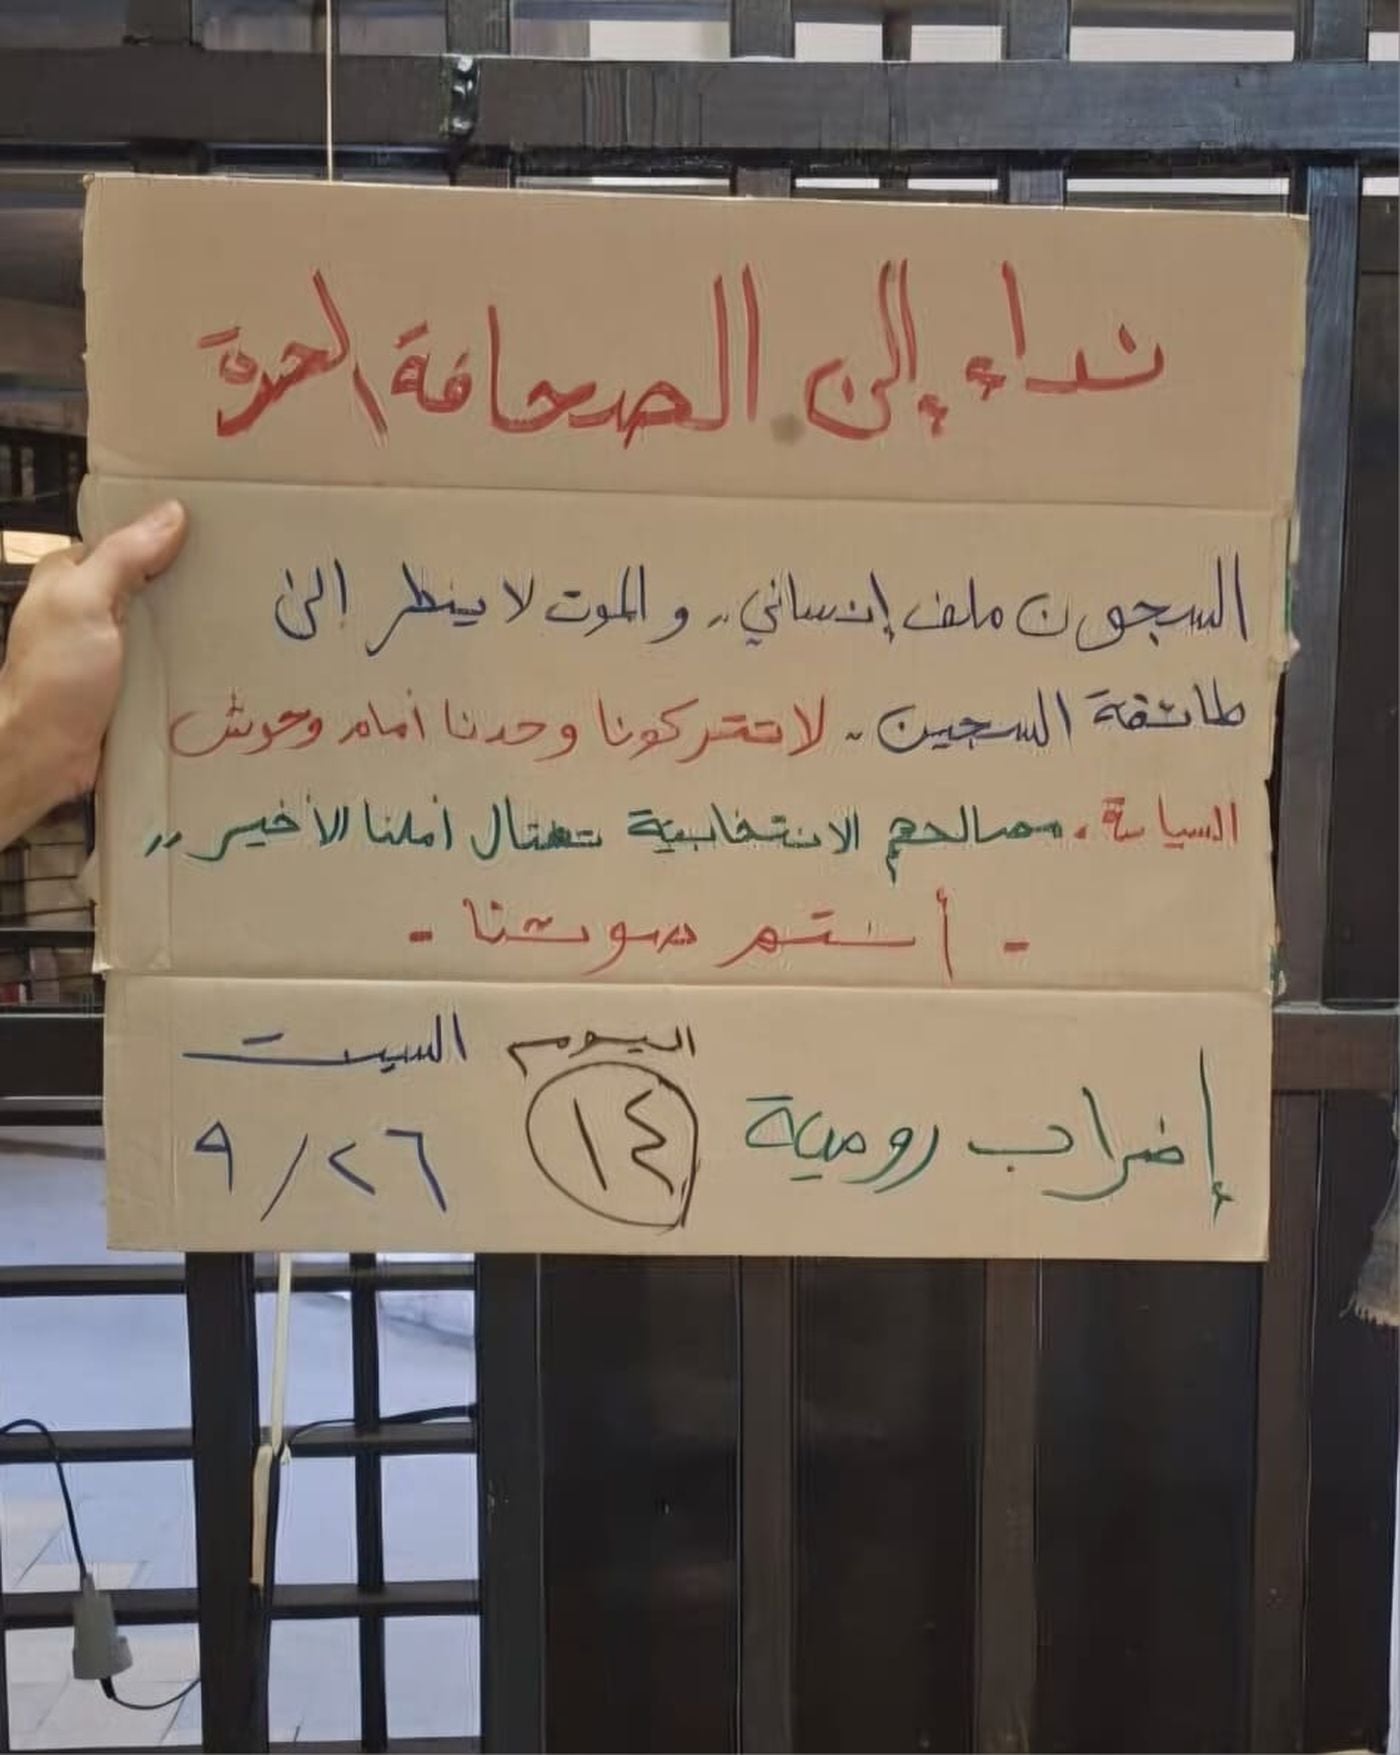 نداء إلى الصحافة الحرة
السجون ملف إنساني.. و الموت لا ينظر الى
طائفة السجين.. لا تتركونا وحدنا أمام وحوش
السياسة. مصالحهم الانتخابية تغتال أملنا الأخير..
- أنتم صوتنا -
إضراب رومية اليوم ١٤ السبت
٢٦/٩